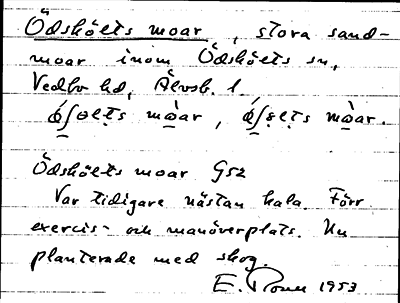 Ödsköelts moar, stora sand-
moar inom Ödskölts sn,
Vedbo hd, Älvsb. l.
ǿʃøḷṭs mòar, ǿʃøḷṭs mòar.
Ödskölts moar G52
Var tidigare nästan kala. Förr
exercis- och manöverplats. Nu
planterade med skog.
E. 1953